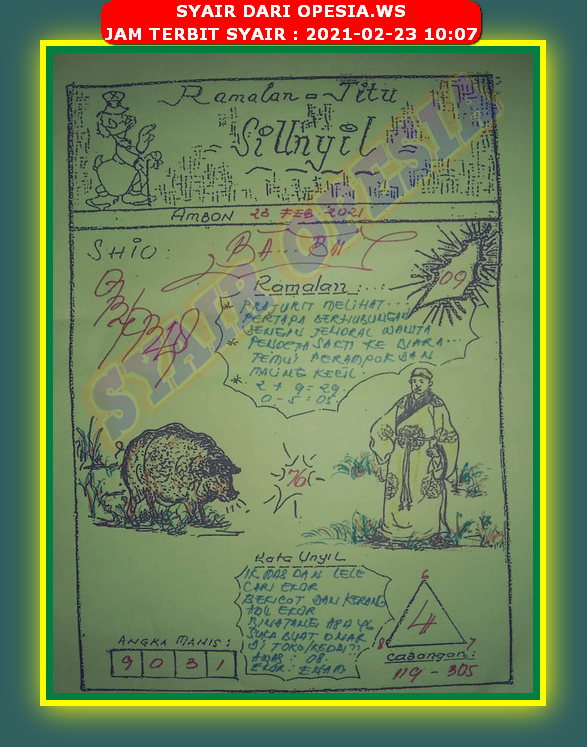 SYAIR DARI OPESIA.WS
JAM TERBIT SYAIR : 2021-02-23 10:07
Ramalan = Jitu
SiUnyil
AMBON 23 FEB 2021
SHIO : BA BII
09
Ramalan :
* PRAJURIT MELIHAT...
PERTAPA BERHUBUNGAN
DENGAN JENDRAL WANITA
* PENDETA SAKTI KE BIARA...
TEMUI PERAMPOK DAN
MALING KECIL.
* 2 + 9 = 29
0 - 5 = 05
SYAIR OPESIA
76
Kata Unyil
IK MAS DAN LELE
CARI EKOR
BEKICOT DAN KERANG
ADU EKOR
BINATANG APA YG
SUKA BUAT ONAR
DI TOKO/KEDAI??
: 08.
EKOR : ENAM
6
4
8
7
ANGKA MANIS :
9 0 3 1
Cabangan :
119 - 305